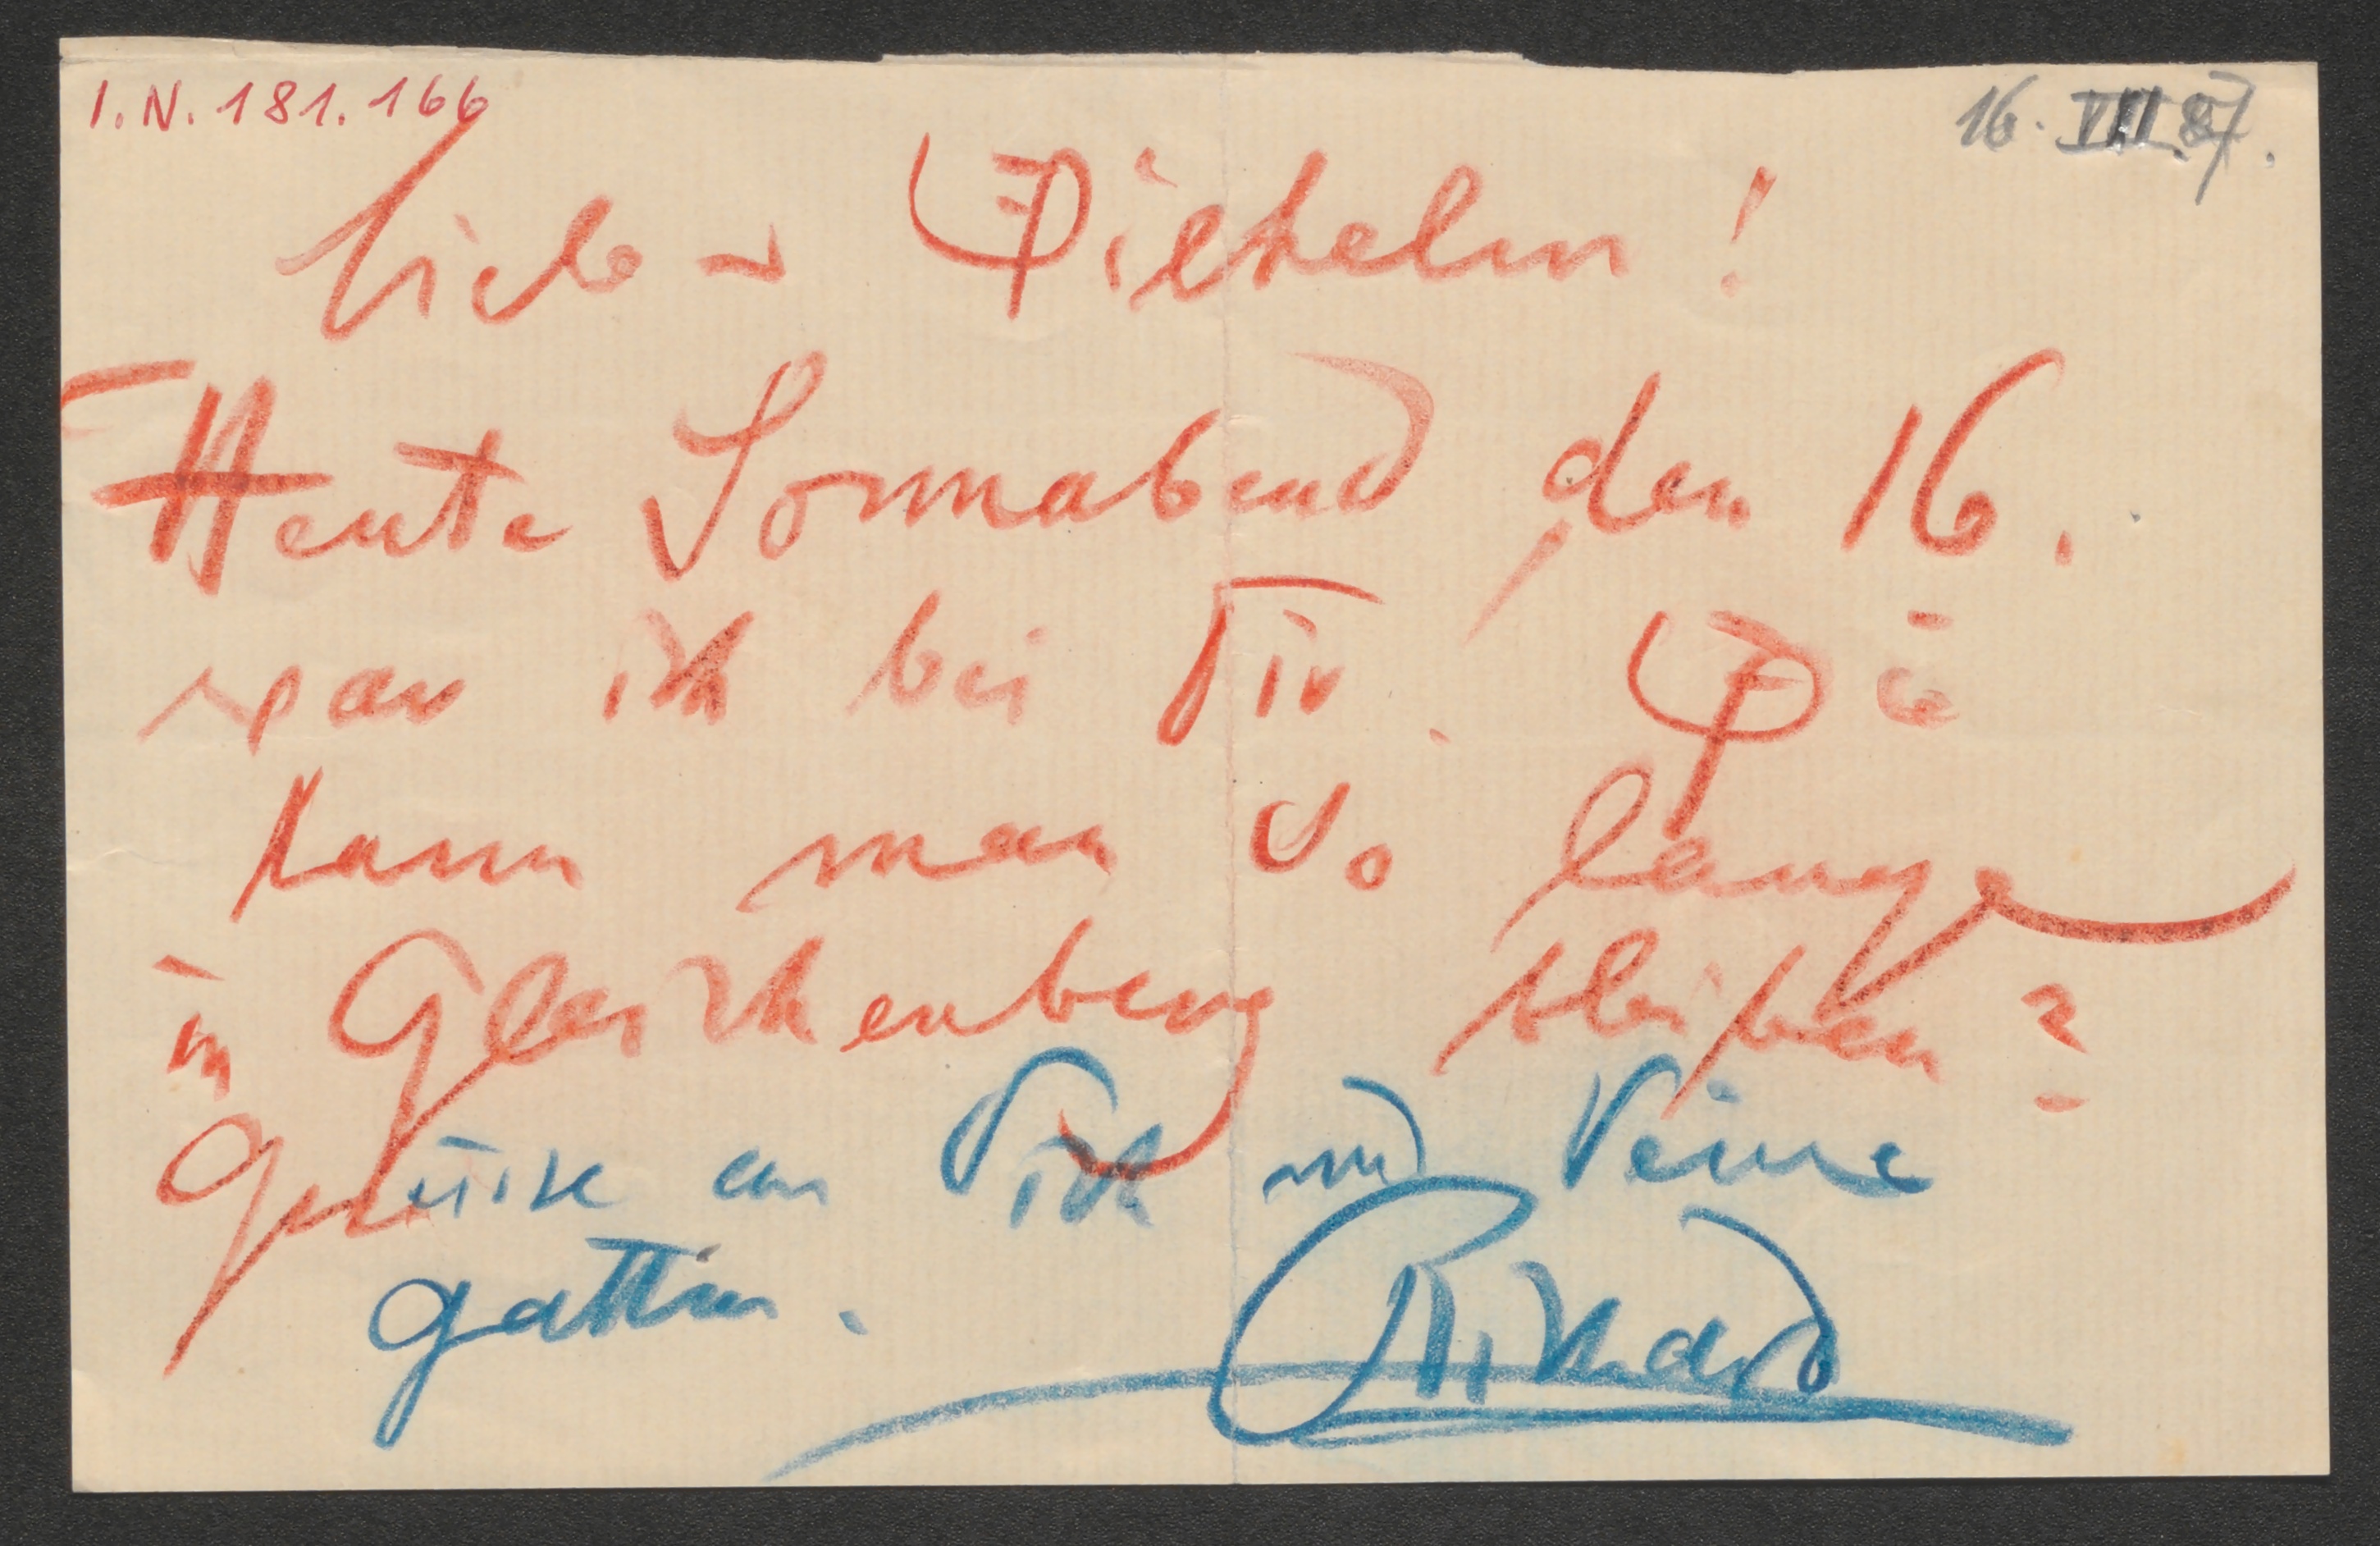 I.N. 181.166
16. VII. 87.
Lieber Wilhelm!
Heute Sonnabend den 16.
war ich bei Dir. Wie
kann man so lange
in Gleichenberg bleiben?
Grüsse an Dich und Deine
Gattin.
Richard